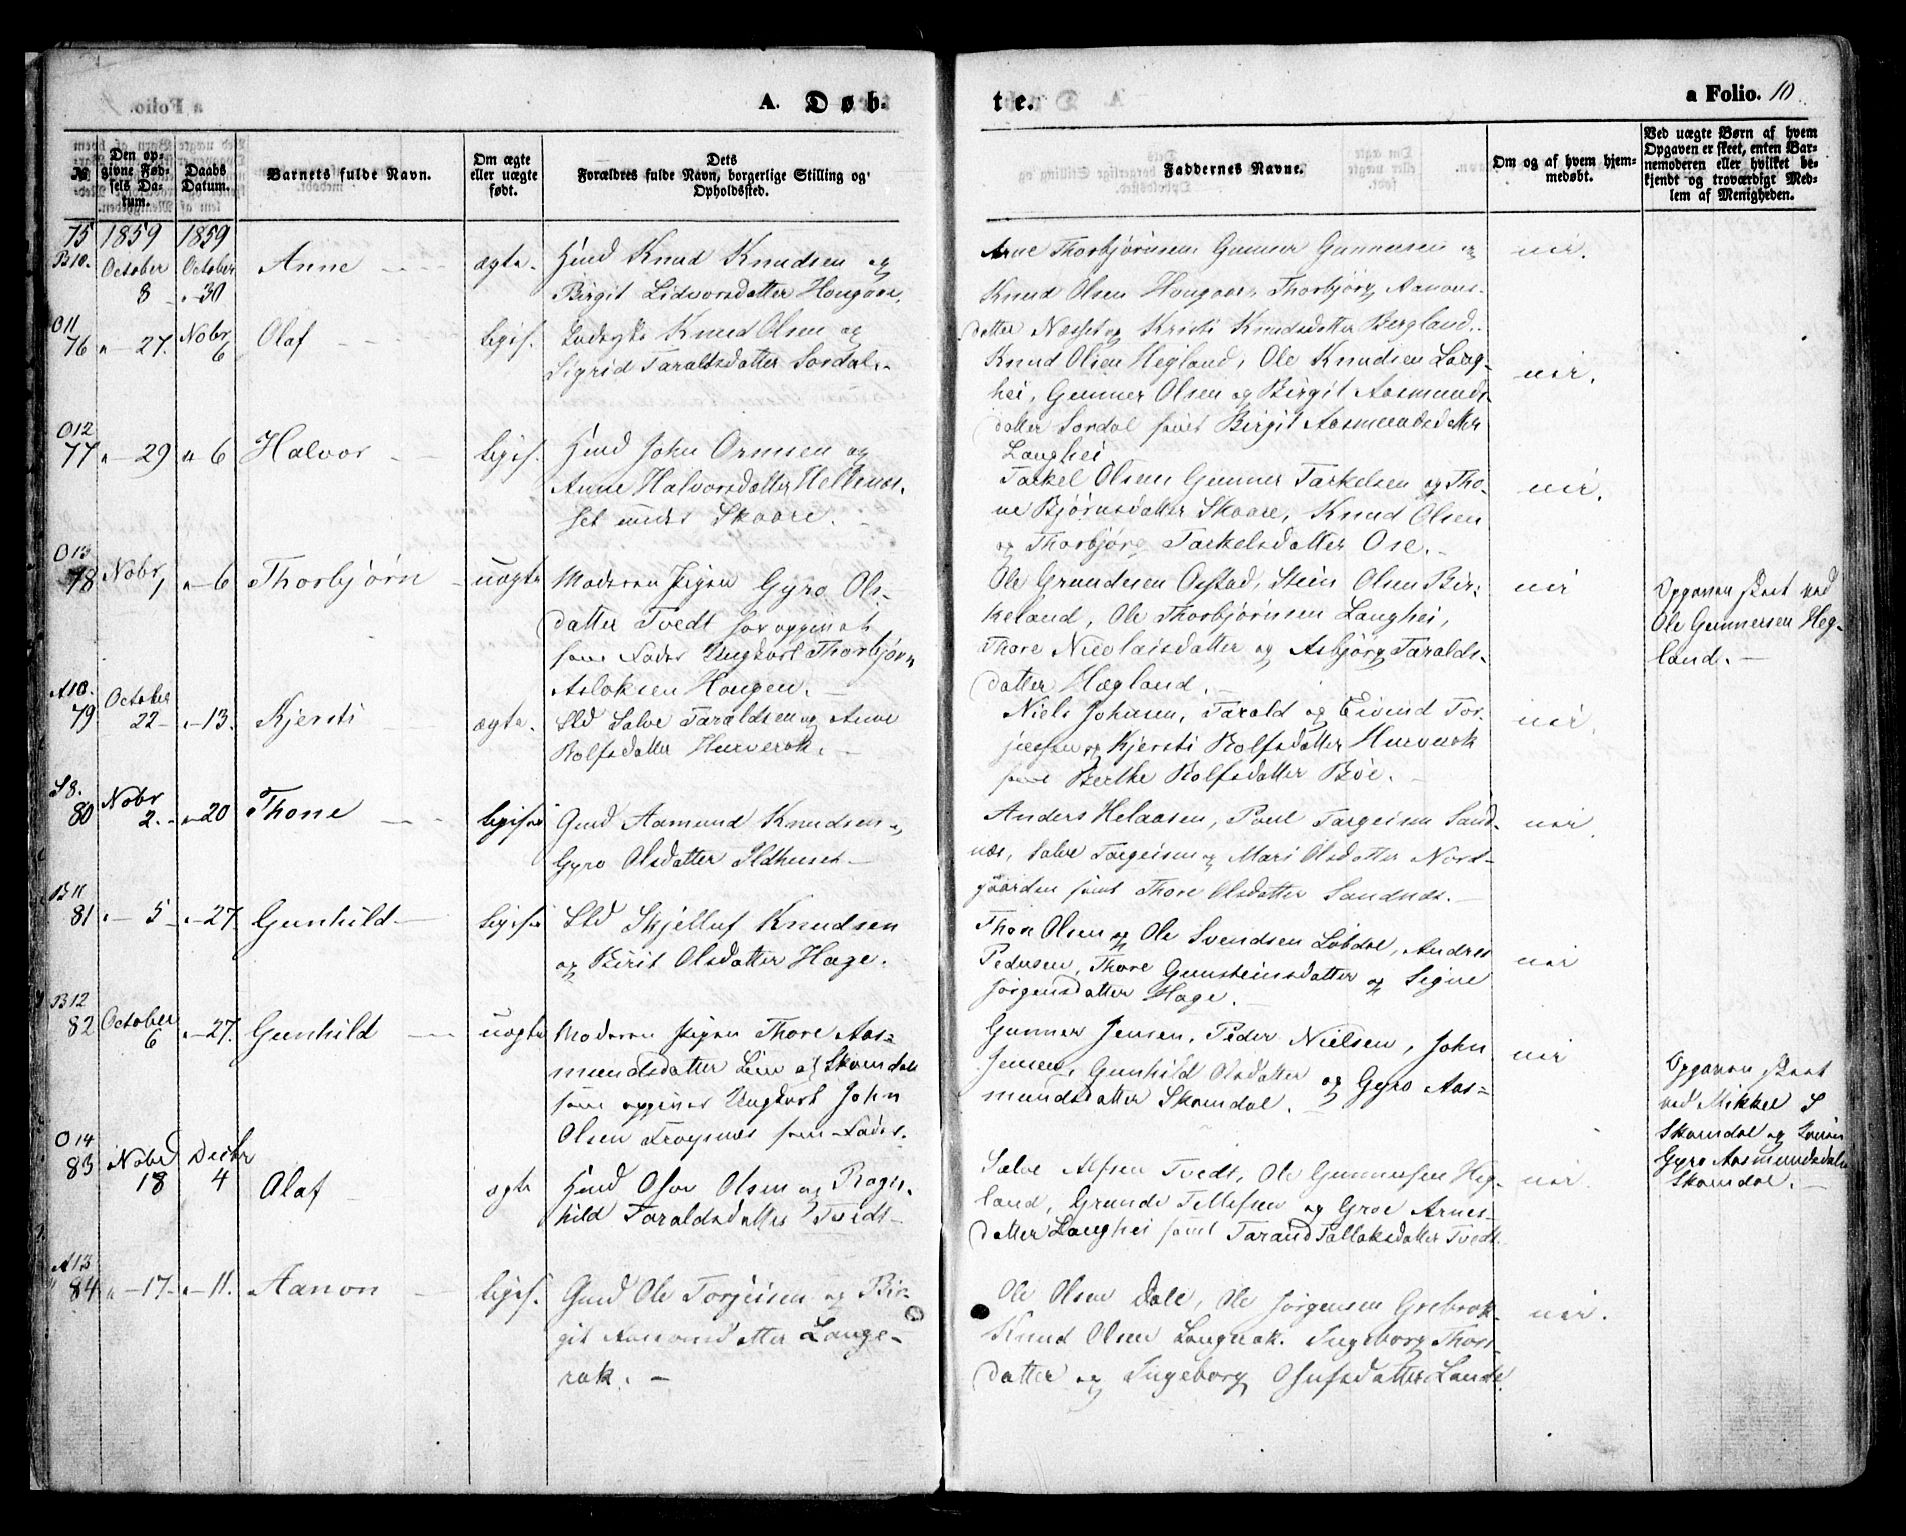 A. Døb-
te.
a Folio. 10.
№
Den op-
givne Fød-
sels Da-
tum.
Daabs
Datum.
Barnets fulde Navn.
Om ægte
eller uægte
født.
Dets
Forældres fulde Navn, borgerlige Stilling og
Opholdssted.
Faddernes Navne.
Om og af hvem hjem-
medøbt.
Ved uægte Børn af hvem
Opgaven er skeet, enten Bar-
nemoderen eller hvilket be-
kjendt og troværdigt Med-
lem af Menigheden.
75 1859 1859
B10. October 8 October 30 Anne ægte.
Knud Knudsen og
Birgit Lidvorsdatter Hougaae.
Arne Thorbjørnsen Gunner Gunnersen og
Knud Olsen Hougaae, Thorbjørg Aanons-
datter Næsset og Kristi Knudsdatter Bergland.
O11
76 " 27. Nobr 6 Olaf legif.
Knud Olsen og
Sigrid Taraldsdatter Sordal.
Knud Olsen Hegland, Ole Knudsen Lang-
hei, Gunner Olsen og Birgit Aasmunds-
datter Sordal samt Birgit Aasmundsdatter
Langhei.
O12
77 " 29 " 6 Halvor legif.
John Ormsen og
Anne Halvorsdatter Hellenes-
set under Skaare.
Tarkel Olsen Gunner Tarkelsen og Tho-
ne Bjørnsdatter Skaare, Knud Olsen
og Thorbjørg Tarkelsdatter Ose.
O13
78 Nobr 1 " 6 Thorbjørn uægte
Moderen Pigen Gyro Ols-
datter Tvedt har opgivet
som Fader Ungkarl Thorbjørn
Aslaksen Hougen.
Ole Grundesen Ousstad, Stein Olsen Bir-
keland, Ole Thorbjørnsen Langhei,
Thore Nicolaisdatter og Asbjørg Taralds-
datter Hægland.
Opgaven skeet ved
Ole Gunnersen Heg-
land.
A10.
79 October 22 " 13. Kjersti ægte.
Sld Salve Taraldsen og Anne
Rolfsdatter Hurverak.
Niels Johnsen, Tarald og Eivind Tor-
jussen og Kjersti Rolfsdatter Hurverak
samt Berthe Rolfsdatter Bøe.
S8.
80 Nobr 2. " 20 Thone legif
Gmd Aamund Knudsen
Gyro Olsdatter Ildhuset
Anders Helaasen, Poul Targeisen Sand-
næs, Salve Targeisen og Mari Olsdatter Nord-
gaarden samt Thore Olsdatter Sandnæs.
B11
81 " 5 " 27. Gunhild legif
Sld Skjelluf Knudsen
og Birit Olsdatter Hage.
Thor Olsen og Ole Svendsen Løbdal, Andres
Pedersen, Thore Gunsteinsdatter og Signe
Jørgensdatter Hage.
B12
82 October 6 " 27. Gunhild uægte
Moderen Pigen Thore Aas-
mundsdatter Lien af Skomdal
som opgiver Ungkarl John
Olsen Frøysnæs som Fader.
Gunner Jensen, Peder Nielsen, John
Jensen, Gunhild Olsdatter og Gyro Aas-
mundsdatter Skomdal.
Opgaven skeet
ved Mikkel S
Skomdal og
Gyro Aasmundsdatter
Skomdal.
O14
83 Nobr 18 Decbr 4 Olaf ægte
Osuv Olsen og Ragn-
hild Taraldsdatter Tvedt
Salve Alfsen Tvedt, Ole Gunnersen Heg-
land, Grunde Tellefsen og Groe Arnes-
datter Langhei samt Tarand Tallaksdatter Tvedt.
A13
84 " 17. " 11. Aanon legif.
Gmd Ole Torjeisen og Bir-
git Aanonsdatter Lange-
rak.
Ole Olsen Dale, Ole Jørgensen Grebrok
Knud Olsen Langerak. Ingeborg Thors-
datter og Ingeborg Osufsdatter Lande